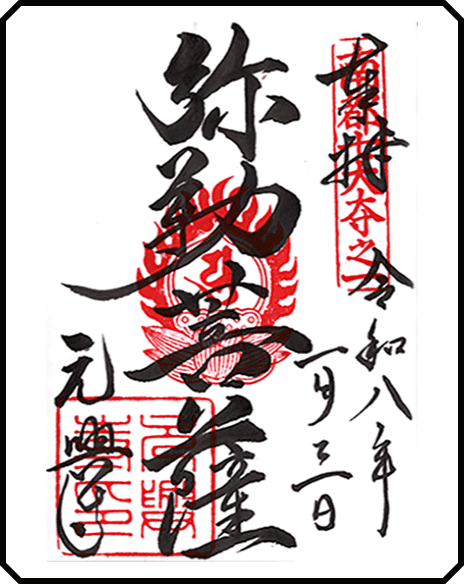 奉拝
南都七大寺之一
令和八年
一月三日
弥勒菩薩
元興寺
元興寺印